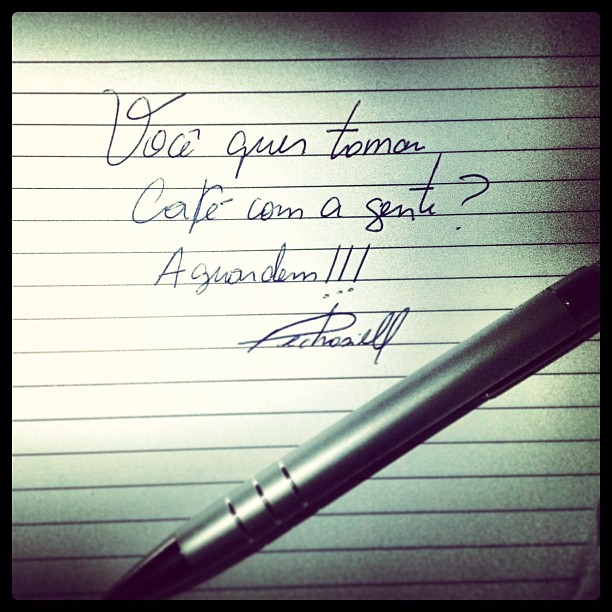 Você quer tomar
Café com a gente?
Aguardem!!!